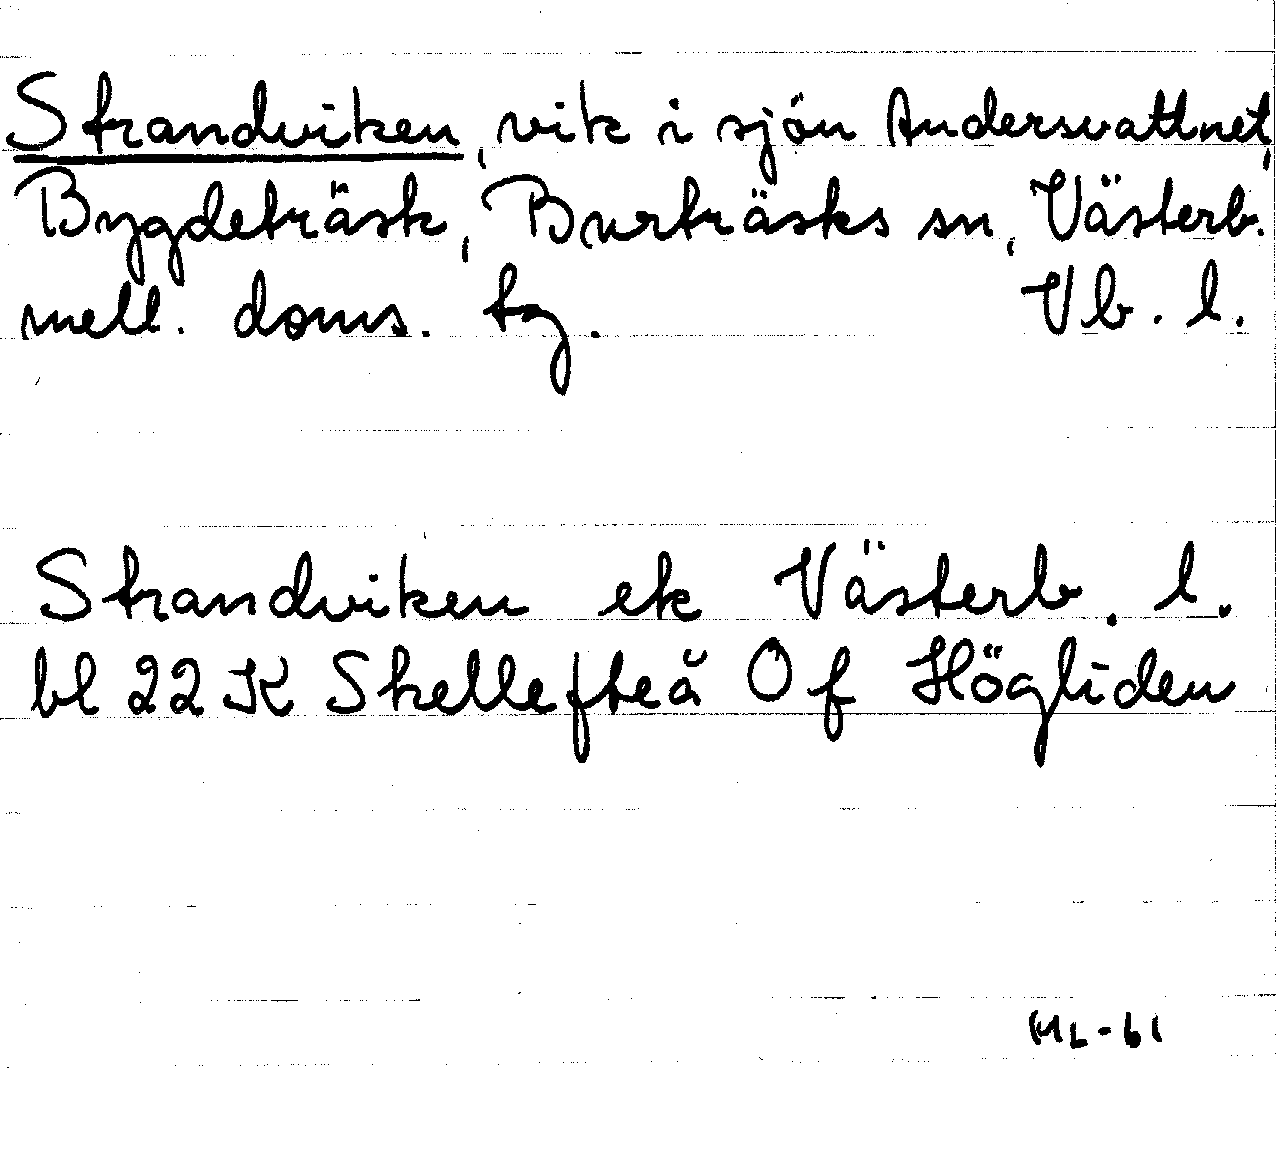 Strandviken, vik i sjön Andersvattnet,
Bygdeträsk, Burträsks sn, Västerb.
mell. doms. tg. Vb. l.
Strandviken ek Västerb. l.
bl 22 K Skellefteå Of Högliden
ML-61